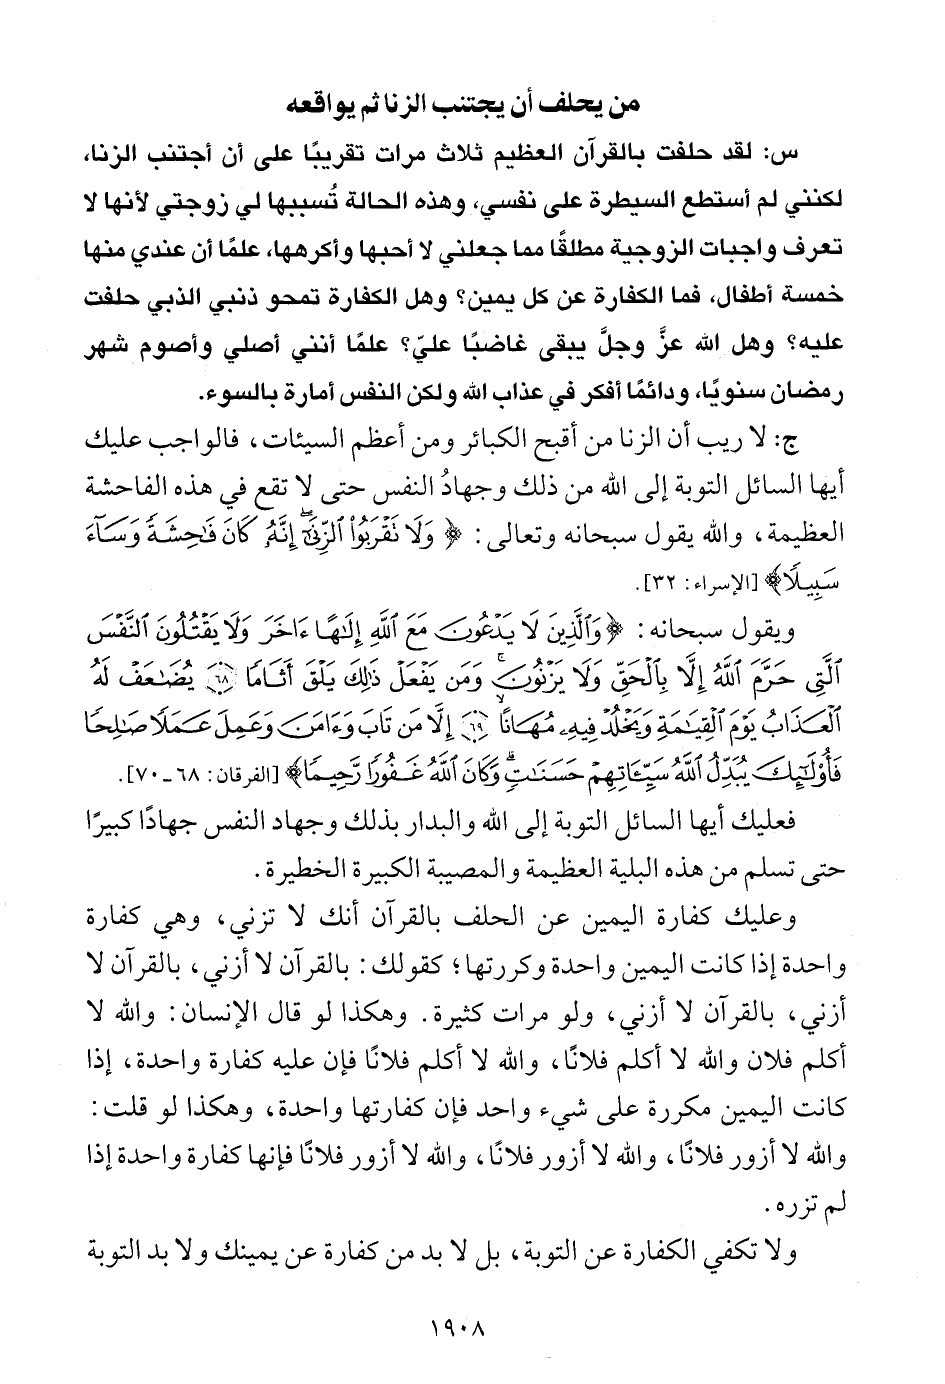 من يحلف أن يجتنب الزنا ثم يواقعه
س: لقد حلفت بالقرآن العظيم ثلاث مرات تقريبًا على أن أجتنب الزنا،
لكنني لم أستطع السيطرة على نفسي، وهذه الحالة تُسببها لي زوجتي لأنها لا
تعرف واجبات الزوجية مطلقًا مما جعلني لا أحبها وأكرهها، علمًا أن عندي منها
خمسة أطفال، فما الكفارة عن كل يمين؟ وهل الكفارة تمحو ذنبي الذي حلفت
عليه؟ وهل الله عزَّ وجلَّ يبقى غاضبًا عليّ؟ علمًا أنني أصلي وأصوم شهر
رمضان سنويًا، ودائمًا أفكر في عذاب الله ولكن النفس أمارة بالسوء.
ج: لا ريب أن الزنا من أقبح الكبائر ومن أعظم السيئات، فالواجب عليك
أيها السائل التوبة إلى الله من ذلك وجهادُ النفس حتى لا تقع في هذه الفاحشة
العظيمة، والله يقول سبحانه وتعالى: ﴿وَلَا تَقْرَبُوا۟ ٱلزِّنَىٰٓ ۖ إِنَّهُۥ كَانَ فَـٰحِشَةً وَسَآءَ
سَبِيلًا﴾ [الإسراء: ٣٢].
ويقول سبحانه: ﴿وَٱلَّذِينَ لَا يَدْعُونَ مَعَ ٱللَّهِ إِلَـٰهًا ءَاخَرَ وَلَا يَقْتُلُونَ ٱلنَّفْسَ
ٱلَّتِى حَرَّمَ ٱللَّهُ إِلَّا بِٱلْحَقِّ وَلَا يَزْنُونَ ۚ وَمَن يَفْعَلْ ذَٰلِكَ يَلْقَ أَثَامًا ﴿٦٨﴾ يُضَـٰعَفْ لَهُ
ٱلْعَذَابُ يَوْمَ ٱلْقِيَـٰمَةِ وَيَخْلُدْ فِيهِۦ مُهَانًا ﴿٦٩﴾ إِلَّا مَن تَابَ وَءَامَنَ وَعَمِلَ عَمَلًا صَـٰلِحًا
فَأُو۟لَـٰٓئِكَ يُبَدِّلُ ٱللَّهُ سَيِّـَٔاتِهِمْ حَسَنَـٰتٍ ۗ وَكَانَ ٱللَّهُ غَفُورًا رَّحِيمًا﴾ [الفرقان: ٦٨-٧٠].
فعليك أيها السائل التوبة إلى الله والبدار بذلك وجهاد النفس جهادًا كبيرًا
حتى تسلم من هذه البلية العظيمة والمصيبة الكبيرة الخطيرة.
وعليك كفارة اليمين عن الحلف بالقرآن أنك لا تزني، وهي كفارة
واحدة إذا كانت اليمين واحدة وكررتها؛ كقولك: بالقرآن لا أزني، بالقرآن لا
أزني، بالقرآن لا أزني، ولو مرات كثيرة. وهكذا لو قال الإنسان: والله لا
أكلم فلان والله لا أكلم فلانًا، والله لا أكلم فلانًا فإن عليه كفارة واحدة، إذا
كانت اليمين مكررة على شيء واحد فإن كفارتها واحدة، وهكذا لو قلت:
والله لا أزور فلانًا، والله لا أزور فلانًا، والله لا أزور فلانًا فإنها كفارة واحدة إذا
لم تزره.
ولا تكفي الكفارة عن التوبة، بل لا بد من كفارة عن يمينك ولا بد التوبة
١٩٠٨